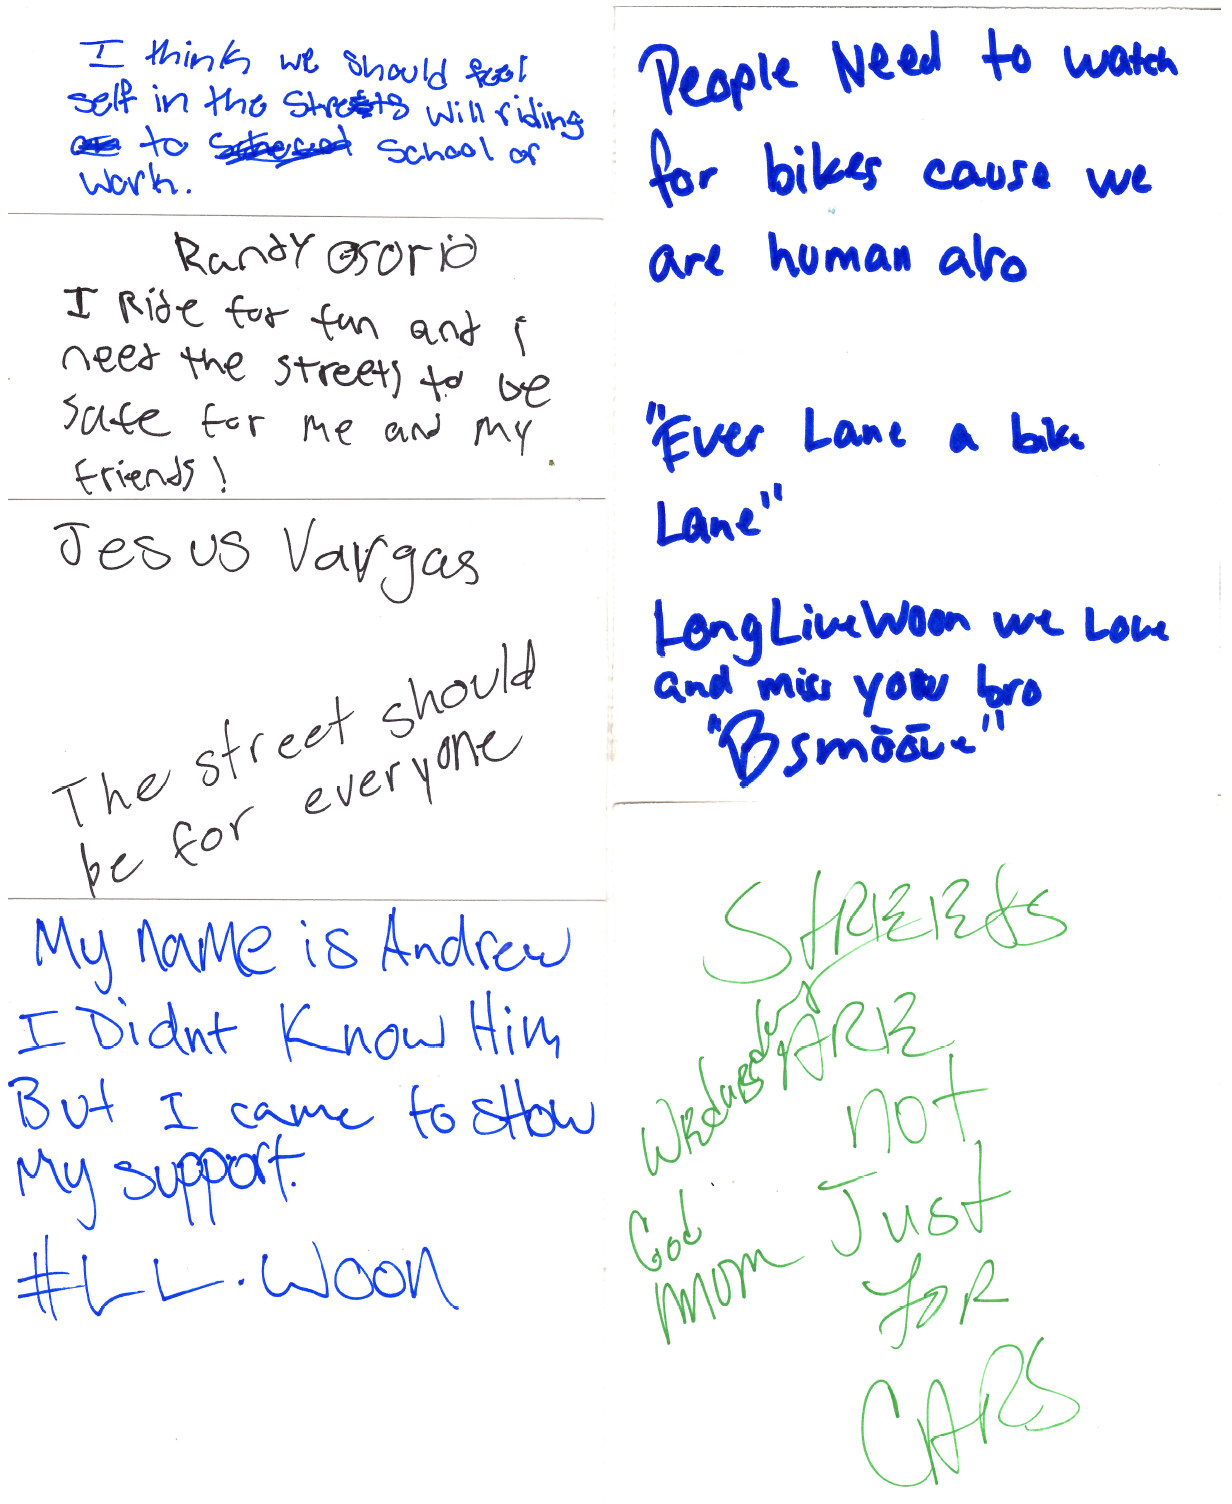 I think we should feel
self in the streets will riding
to school or
work.
Randy Osorio
I Ride for fun and i
need the streets to be
safe for me and my
friends!
Jesus Vargas
The street should
be for everyone
My name is Andrew
I Didnt Know Him
But I came to sHow
My support.
#LL.Woon
People Need to watch
for bikes cause we
are human also
"Ever Lane a bike
Lane"
LongLiveWoon we Love
and miss you bro
"Bsmōōve"
STREEts
ARE
not
Just
foR
CARS
Wednesday
God
mom